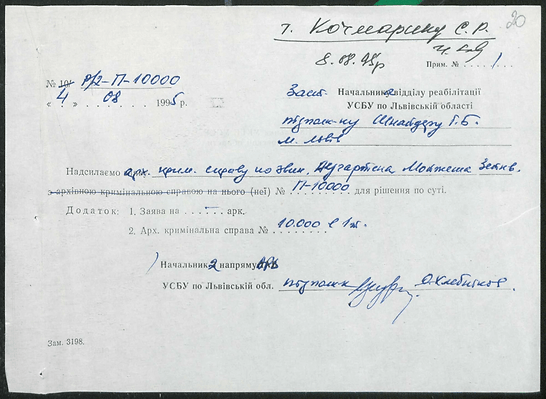 20
т. Кочмарику С.Р.
8.08.95р
Прим. № 1
№ 101 Р/2-П-10000
" 4 " 08 1995 р.
Заст. Начальника відділу реабілітації
УСБУ по Львівській області
підполк-ку Шнайдеру Г.Б.
м. Львів
Надсилаємо арх. крим. справу по звин. Мойжеша
з архівною кримінальною справою на нього (неї) № П-10000 для рішення по суті.
Додаток: 1. Заява на арк.
2. Арх. кримінальна справа № 10.000 в 1 т.
Начальник 2 напряму
УСБУ по Львівській обл. підполк О.Хлебніков.
Зам. 3198.